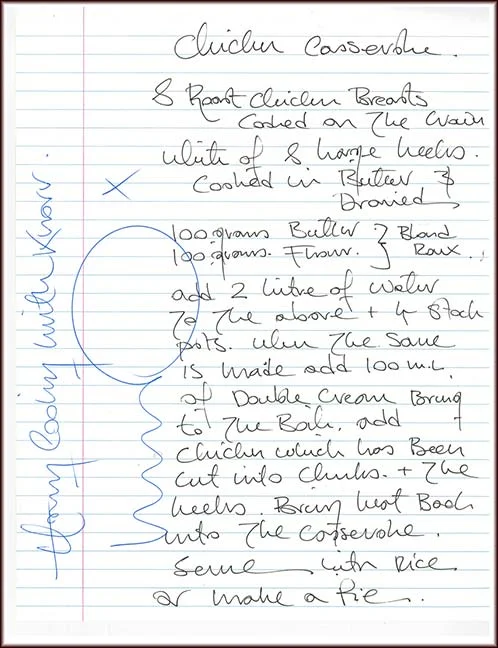 Chicken Casserole.
8 Roast Chicken Breasts
Cooked on The Crown
White of 8 large leeks.
Cooked in Butter &
Drained
100 grams Butter } Blond
100 grams. Flour. } Roux.
add 2 litre of water
To The above + 4 Stock
pots. when The Sauce
is made add 100 m.L.
of Double Cream Bring
to The Boil. add
Chicken which has Been
Cut into Chunks. + The
leeks. Bring heat Back
into The Casserole.
Serve with Rice
or make a Pie.
Happy Cooking with Knorr.
X